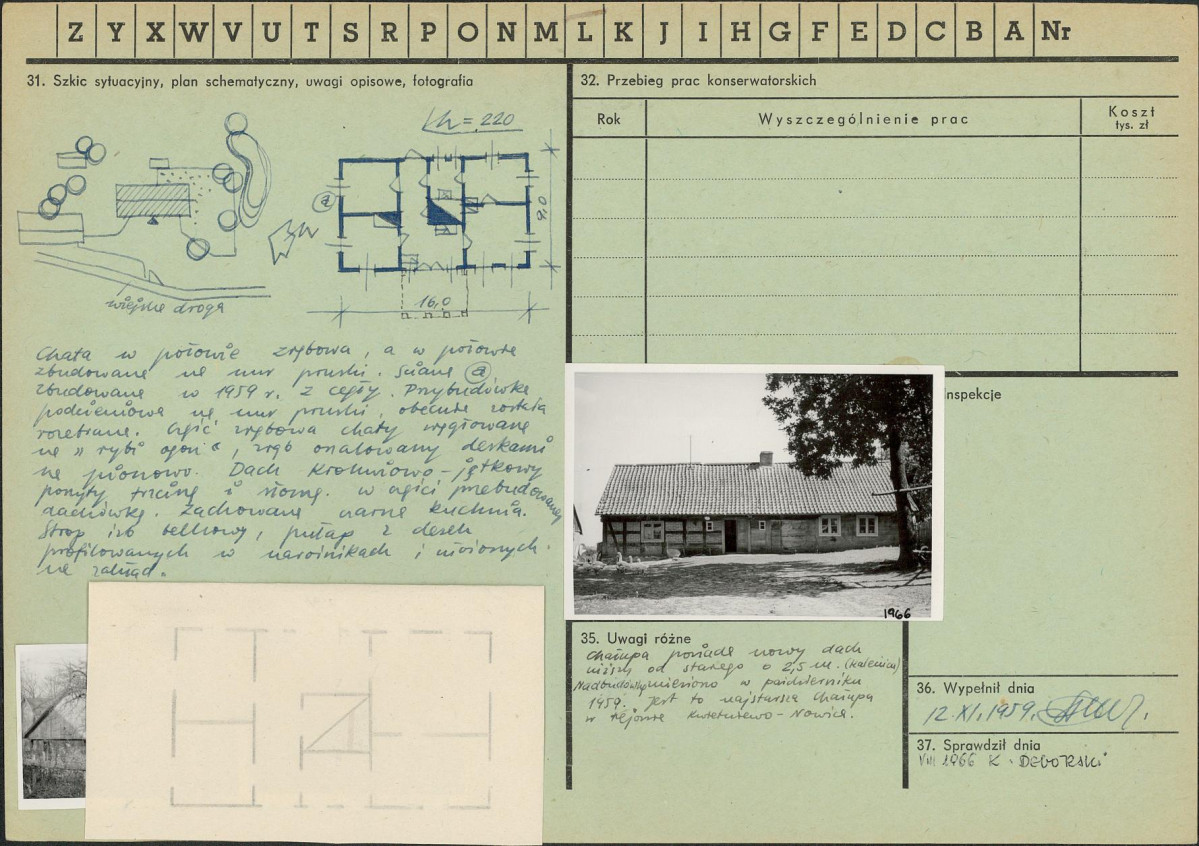 Z Y X W V U T S R P O N M L K J I H G F E D C B A Nr
31. Szkic sytuacyjny, plan schematyczny, uwagi opisowe, fotografia
h = 220
a
9,0
16,0
wiejska droga
Chata w połowie zrębowa, a w połowie
zbudowana na mur pruski. Ściana a
zbudowana w 1959 r. z cegły. Przybudówka
podcieniowa na mur pruski, obecnie została
rozebrana. Część zrębowa chaty węgłowana
na "rybi ogon", zrąb oszalowany deskami
na pionowo. Dach krokwiowo-jętkowy
pokryty trzciną i słomą. W części przebudowanej
dachówką. Zachowana czarna kuchnia.
Strop belkowy, pułap z desek
profilowanych w narożnikach i
na zakład.
32. Przebieg prac konserwatorskich
Rok
Wyszczególnienie prac
Koszt
tys. zł
nspekcje
1966
35. Uwagi różne
Chałupa posiada nowy dach
niższy od starego o 2,5 m.
Nadbudówkę zniesiono w październiku
1959. Jest to najstarsza chałupa
w rejonie
36. Wypełnił dnia
12.XI.1959.
37. Sprawdził dnia
VIII 1966 K. DEGORSKI